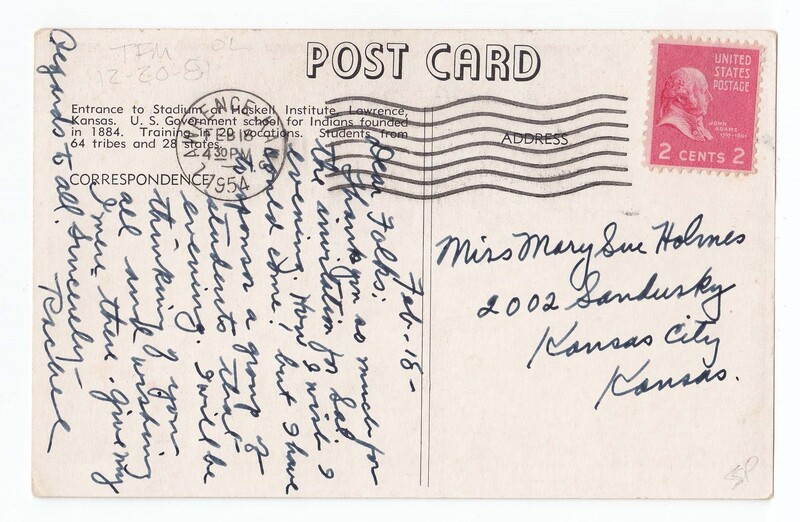 TFM OL
12-20-81
POST CARD
Entrance to Stadium of Haskell Institute, Lawrence,
Kansas. U. S. Government school for Indians founded
in 1884. Training in 28 vocations. Students from
64 tribes and 28 states.
CORRESPONDENCE
ADDRESS
LAWRENCE KANS.
FEB 18
4 30 PM
1954
UNITED
STATES
POSTAGE
JOHN
ADAMS
1797-1801
2 CENTS 2
Feb-18-
Dear Folks:
Thank you so much for
the invitation for Sat.
evening. How I wish I
could come, but I have
to sponsor a group of
students that
evening. I will be
thinking of you
all and wishing
I were there. Give my
Regards to all. Sincerely-
Rachel
Miss Mary Sue Holmes
2002 Sandusky
Kansas City
Kansas.